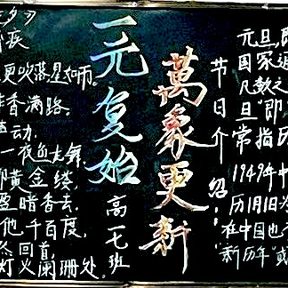 夕》
更吹落星如雨。
香满路。
动,
一夜鱼龙舞。
黄金缕
盈暗香去。
他千百度,
回首,
灯火阑珊处。
一元复始
高一七班
萬象更新
节日介绍:
元旦,即
国家通
凡数之
旦"即
常指历
1949年中
历1月1日
在中国也
"新历年"或